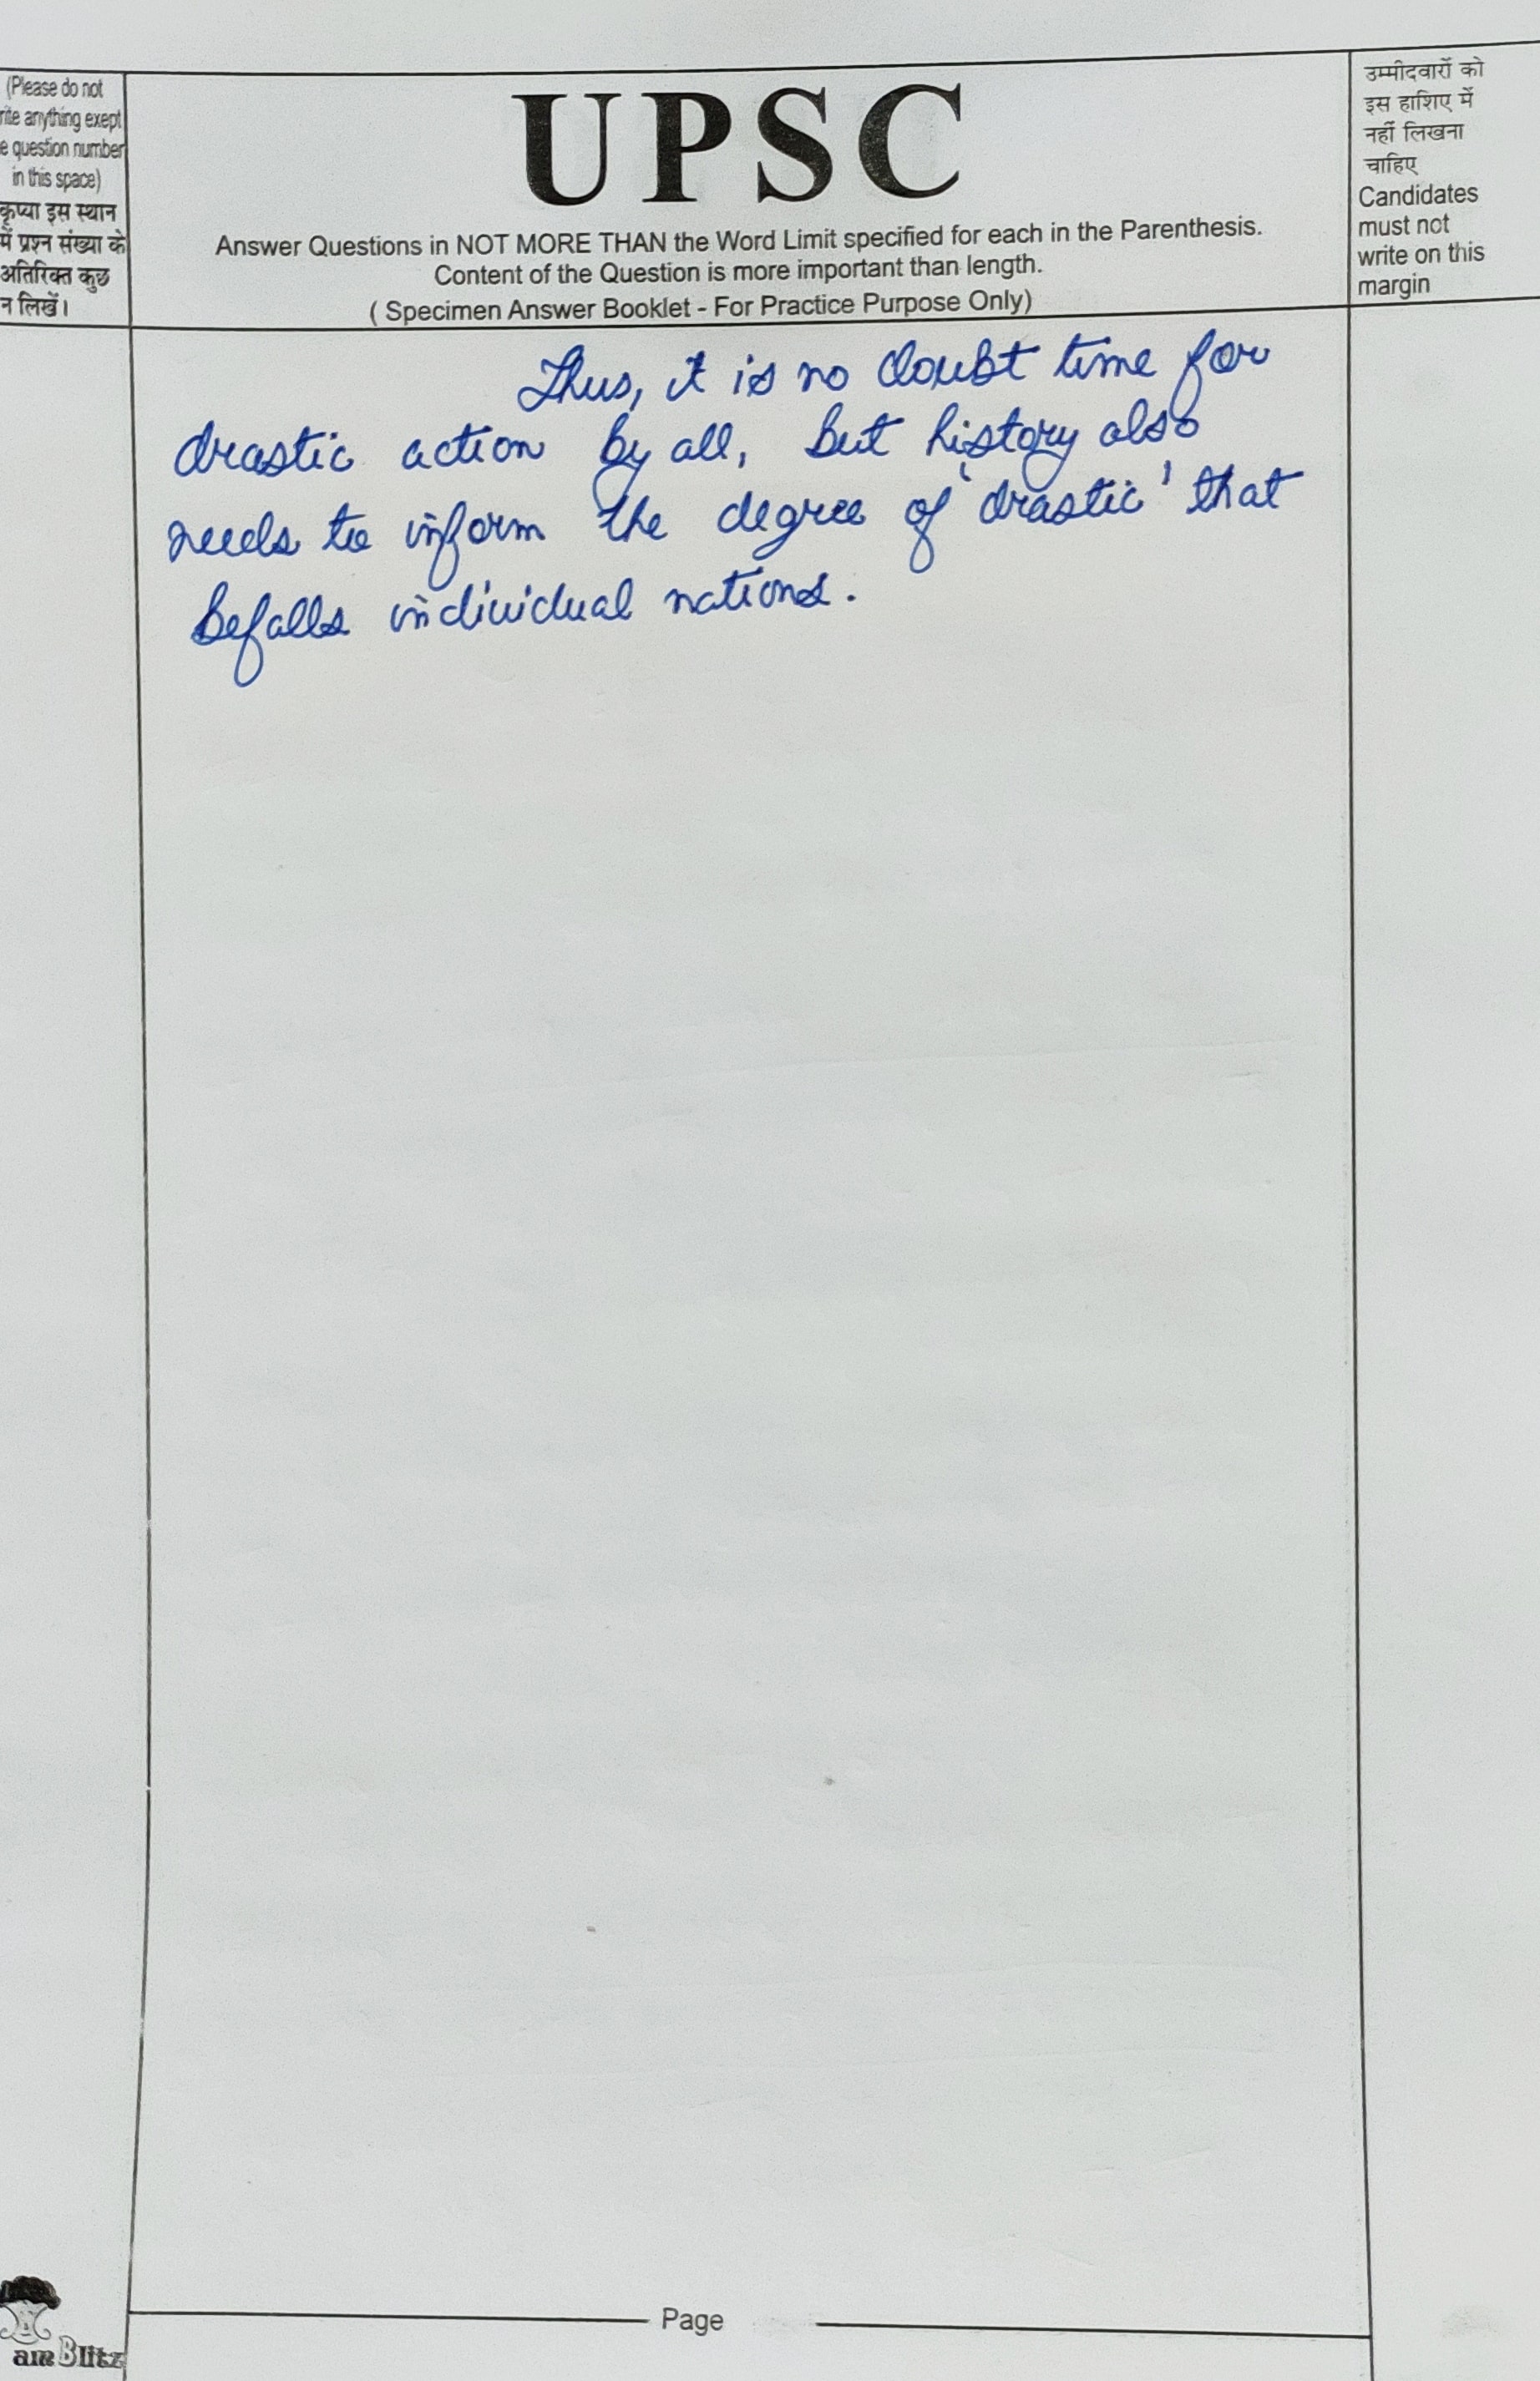 (Please do not
rite anything exept
e question number
in this space)
कृप्या इस स्थान
में प्रश्न संख्या के
अतिरिक्त कुछ
न लिखें।
UPSC
Answer Questions in NOT MORE THAN the Word Limit specified for each in the Parenthesis.
Content of the Question is more important than length.
( Specimen Answer Booklet - For Practice Purpose Only)
उम्मीदवारों को
इस हाशिए में
नहीं लिखना
चाहिए
Candidates
must not
write on this
margin
Thus, it is no doubt time for
drastic action by all, but history also
needs to inform the degree of 'drastic' that
befalls individual nations.
Page
am Blitz